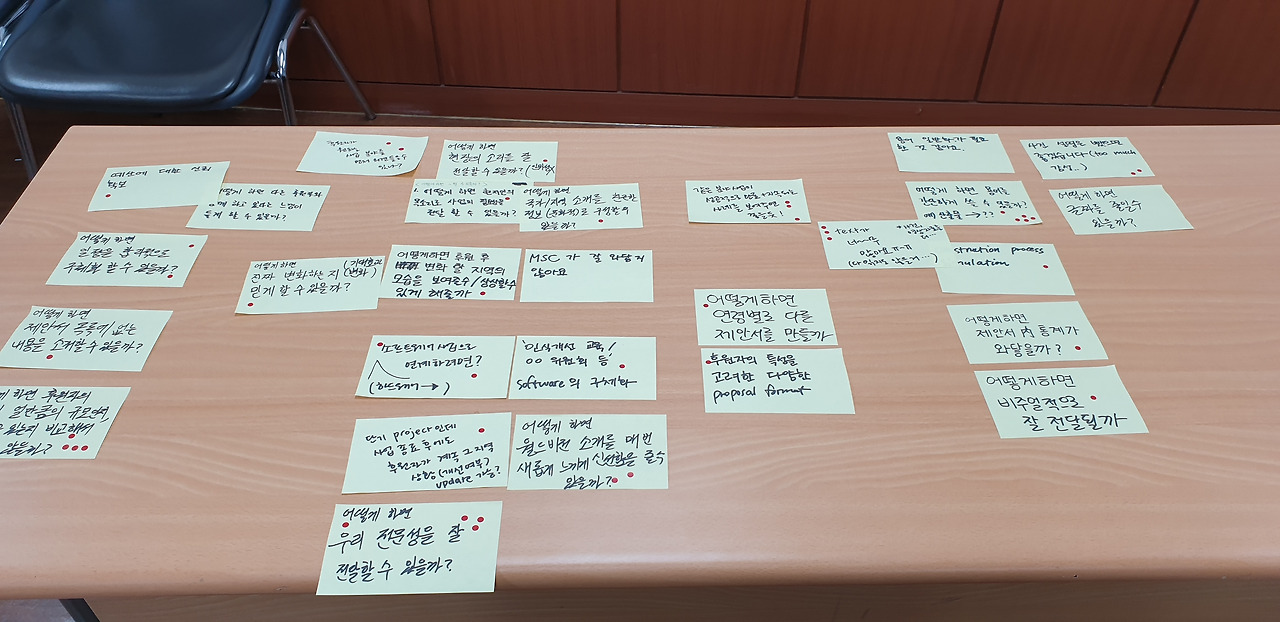 예산에 대한 신뢰
확보
어떻게 하면
일정을 합리적으로
수 있을까?
어떻게 하면
제안서 목록에 없는
내용을 소개할 수 있을까?
하면 후원자의
비교해서
있을까?
어떻게 하면
현장의 소리를 잘
전달할 수 있을까?
하면 나는 후원자와
하고 있다는 느낌이
들게 할 수 있을까?
1. 어떻게 하면 현지인의
목소리로 사업의 필요성을
전달 할 수 있을까?
어떻게 하면
국가/지역 소개를 간단한
정보 로 구성할 수
있을까?
어떻게 하면
진짜 변화하는지 (변화)
믿게 할 수 있을까?
어떻게하면 후원 후
변화 할 지역의
모습을 보여줄수/상상할수
있게 해줄까
MSC가 잘 와닿지
않아요
소프트웨어 사업으로
연계하려면?
(하드웨어→)
'인식개선 교육/
○○ 위원회 등'
software의 구체화
단기 project인데
사업 종료 후에도
후원자가 계속 그 지역
상황(개선여부)
update 가능?
어떻게 하면
월드비전 소개를 매번
새롭게 느끼게 신선함을 줄 수
있을까?
어떻게 하면
우리 전문성을 잘
전달할 수 있을까?
같은 분야 사업이
성공적으로 된
사례를 보여주면
좋을듯!
어떻게하면
연령별로 다른
제안서를 만들까
후원자의 특성을
고려한 다양한
proposal format
text가
너무
많아요 ㅠㅠ
용어 일반화가 필요
한 것 같아요.
사진 설명은 뺐으면
좋겠습니다 (too much
어떻게 하면 용어를
간단하게 쓸 수 있을까?
예) 산출물 →??
어떻게 하면
글자를 줄일수
있을까?
struction process
mulation
어떻게하면
제안서 內 통계가
와닿을까?
어떻게하면
비주얼적으로
잘 전달될까